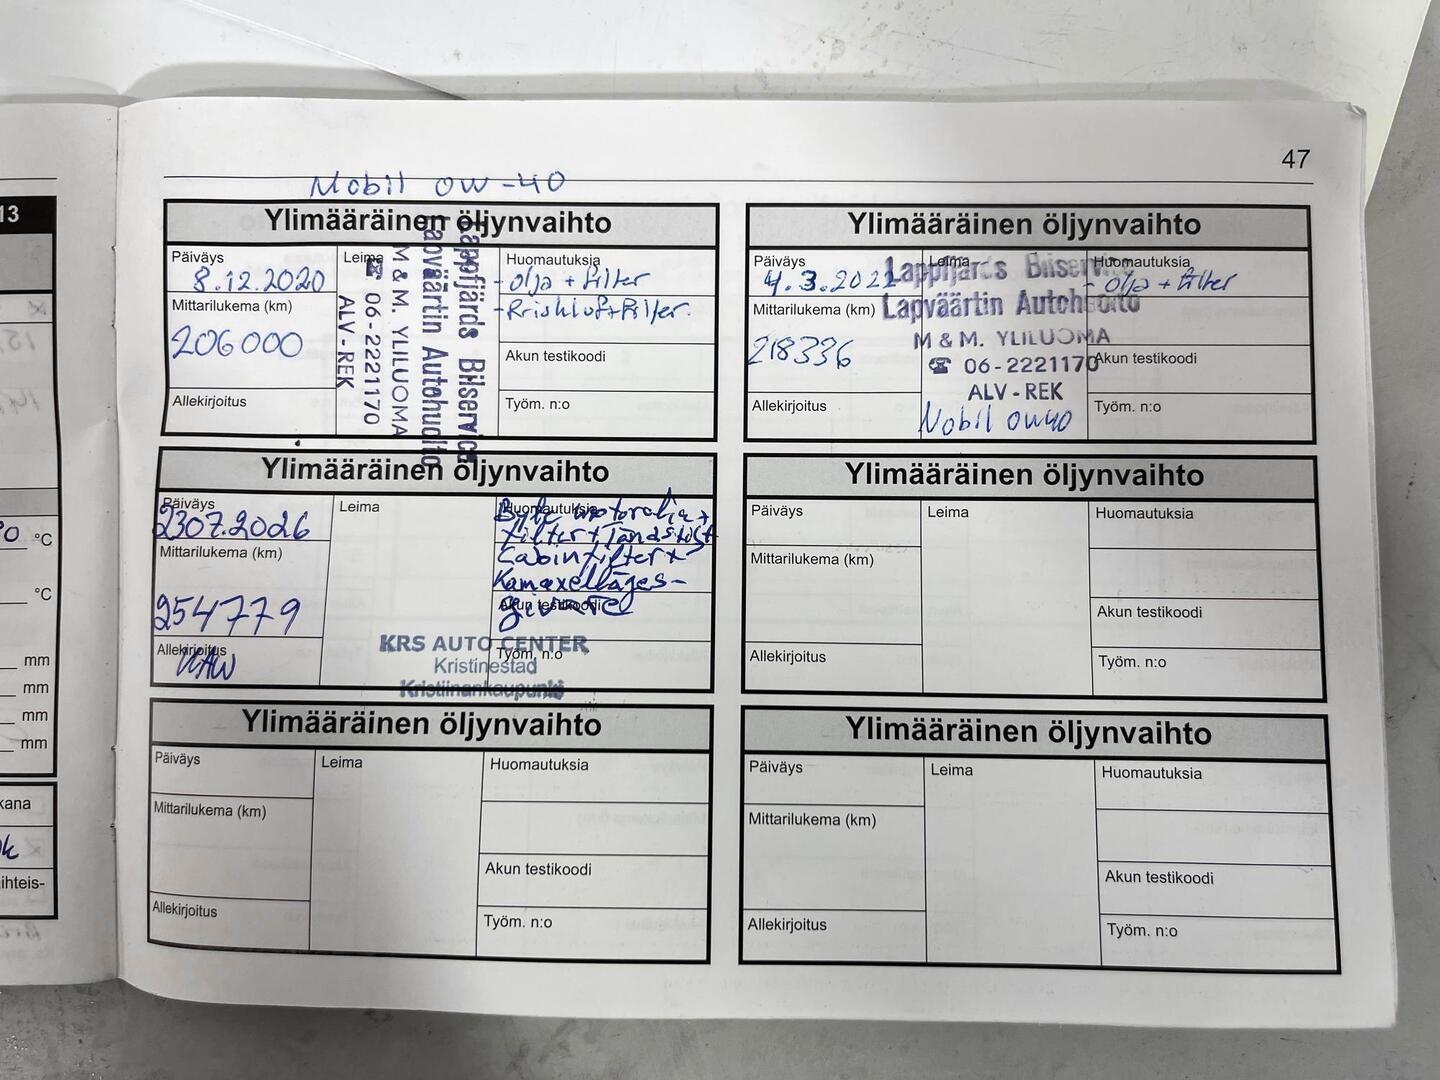 13
0 °C
°C
mm
mm
mm
mm
kana
k
ihteis-
47
Mobil 0W-40
Ylimääräinen öljynvaihto
Päiväys
8.12.2020
Mittarilukema (km)
206000
Allekirjoitus
Leima
Lappfjärds Bilservice
Lapväärtin Autohuolto
M & M. YLILUOMA
☎ 06-2221170
ALV - REK
Huomautuksia
- olja + filter
- Friskluftfilter.
Akun testikoodi
Työm. n:o
Ylimääräinen öljynvaihto
Päiväys
4.3.2022
Mittarilukema (km)
218336
Allekirjoitus
Leima
Lappfjärds Bilservice
Lapväärtin Autohuolto
M & M. YLILUOMA
☎ 06-2221170
ALV - REK
Mobil 0W40
Huomautuksia
- olja + filter
Akun testikoodi
Työm. n:o
Ylimääräinen öljynvaihto
Päiväys
2307.2026
Mittarilukema (km)
254779
Allekirjoitus
Leima
KRS AUTO CENTER
Kristinestad
Kristiinankaupunki
Huomautuksia
Byte motorolja +
filter + Tändstift
Cabinfilter +
Kamaxelläges-
givare
Akun testikoodi
Työm. n:o
Ylimääräinen öljynvaihto
Päiväys
Mittarilukema (km)
Allekirjoitus
Leima
Huomautuksia
Akun testikoodi
Työm. n:o
Ylimääräinen öljynvaihto
Päiväys
Mittarilukema (km)
Allekirjoitus
Leima
Huomautuksia
Akun testikoodi
Työm. n:o
Ylimääräinen öljynvaihto
Päiväys
Mittarilukema (km)
Allekirjoitus
Leima
Huomautuksia
Akun testikoodi
Työm. n:o